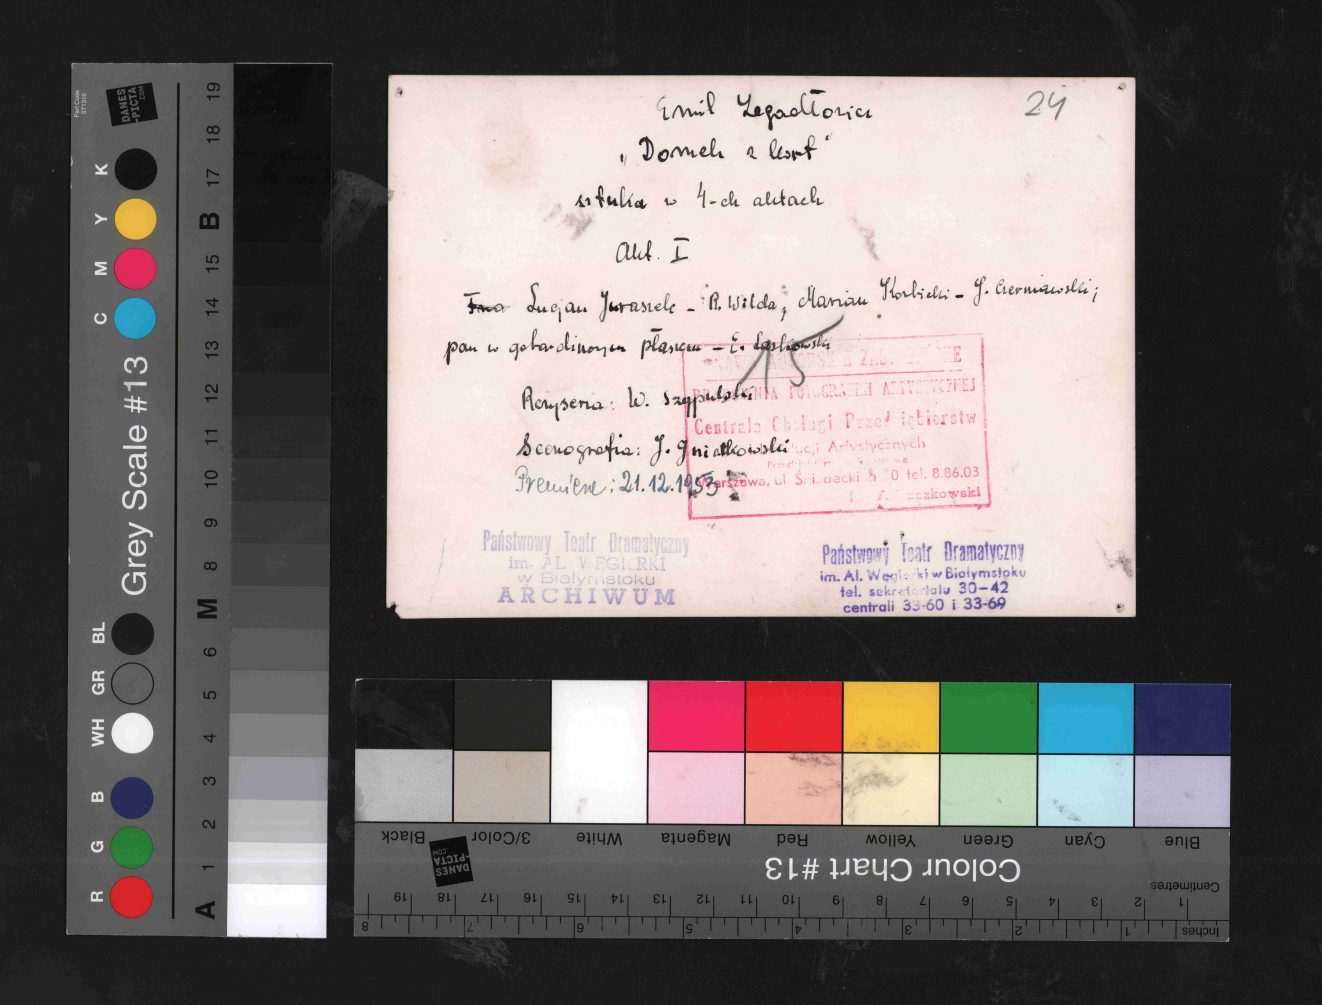 Emil Zegadłowicz
24
„Domek z kart"
sztuka w 4-ch aktach
Akt. I
Lucjan Juraszek - R. Wilda, Marian J. Czerniawski;
pan w gabardinowym płaszczu - E.
15
Reżyseria: W. Szypulski
Scenografia: J. Gniatkowski
Premiera: 21.12.1953
Centrala Obsługi
Artystycznych
Warszawa, ul tel. 8.86.03
Państwowy Teatr Dramatyczny
im. AL. WĘGIERKI
w Białymstoku
ARCHIWUM
Państwowy Teatr Dramatyczny
im. Al. Węgierki w Białymstoku
tel. sekretariatu 30-42
centrali 33-60 i 33-69
Part Code
ST1316
DANES
-PICTA
.COM
Grey Scale #13
K
Y
M
C
BL
GR
WH
B
G
R
19
18
17
B
15
14
13
12
11
10
9
8
M
6
5
4
3
2
1
A
Black
3/Color
White
Magenta
Red
Yellow
Green
Cyan
Blue
DANES
-PICTA
.COM
Colour Chart #13
Centimetres
1 2 3 4 5 6 7 8 9 10 11 12 13 14 15 16 17 18 19
Inches
1 2 3 4 5 6 7 8